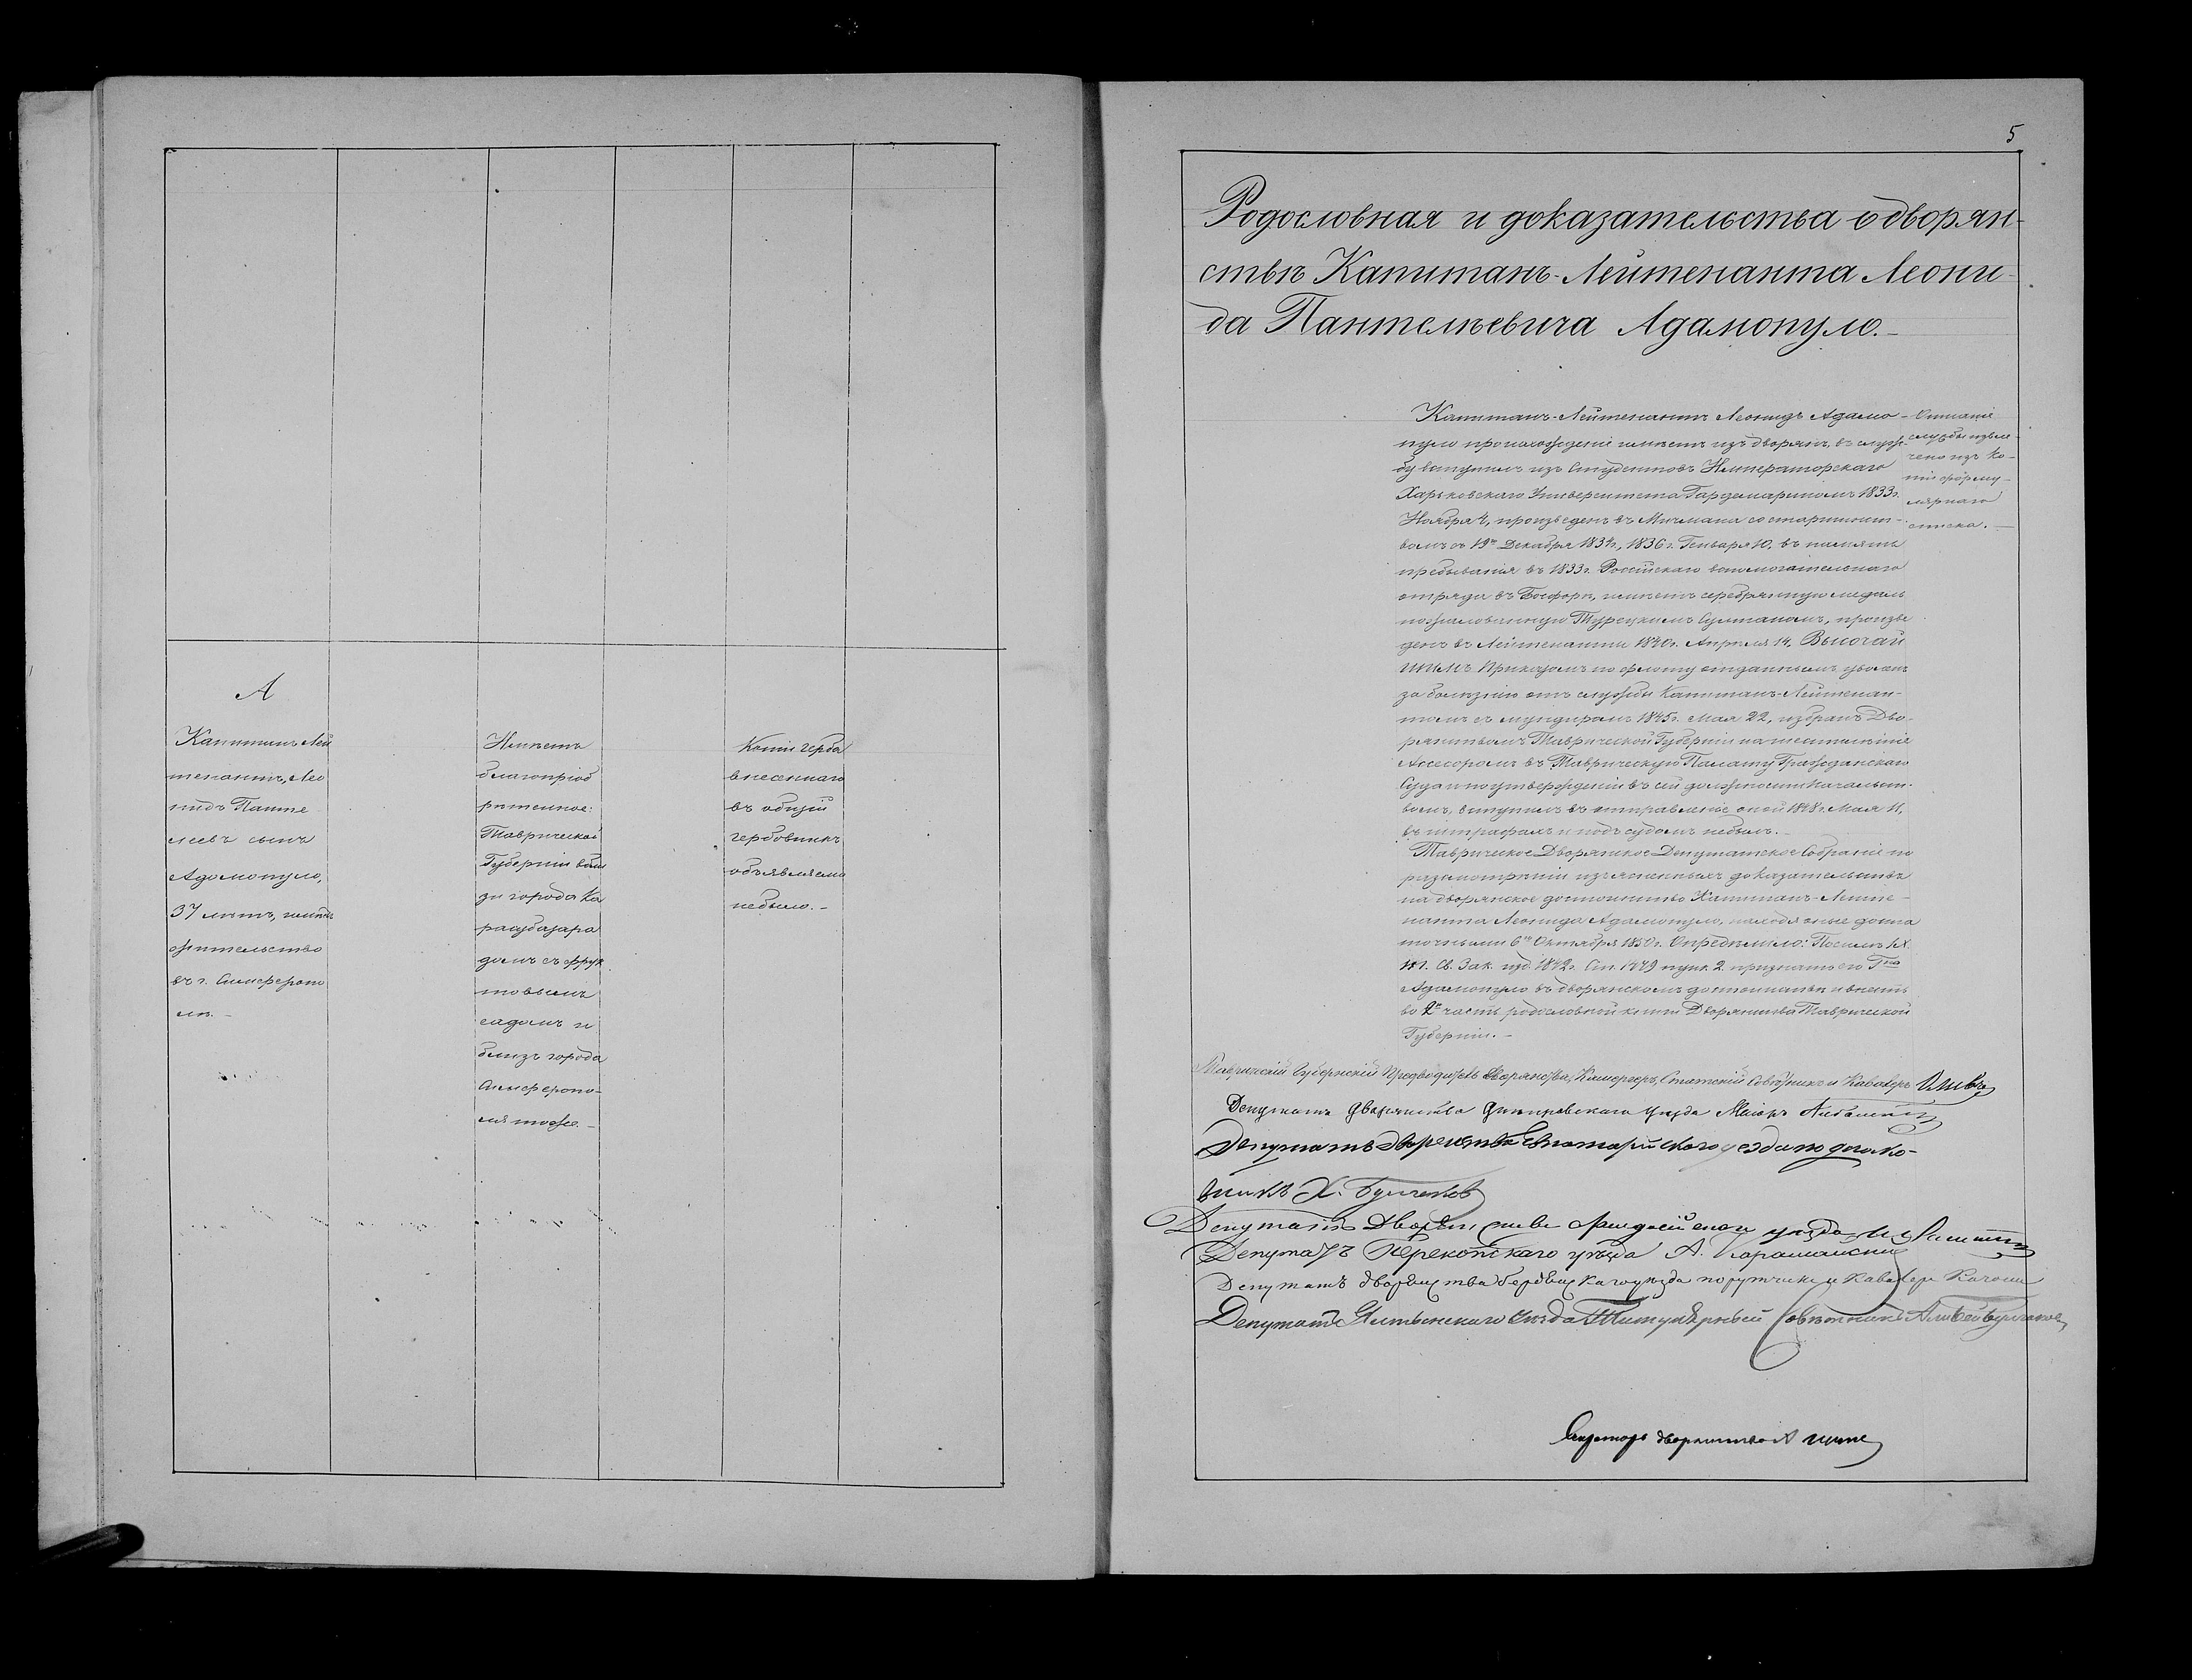 А
Капитанъ Лей
тенантъ, Лео
нидъ Панте
леевъ сынъ
Адамопуло,
37 лѣтъ, имѣетъ
жительство
въ г. Симферопо
лѣ. –
Имѣетъ
благопріоб
рѣтенное:
Таврической
Губерніи вбли
зи города Ка
расубазара
домъ съ фрук
товымъ
садомъ и
близъ города
Симферопо-
ля тоже. –
Копіи герба
внесеннаго
въ общій
гербовникъ
объявляемо
небыло. –
5
Родословная и доказательства о дворян-
ствѣ Капитанъ-Лейтенанта Леони-
да Пантелѣевича Адамопуло. –
Капитанъ-Лейтенантъ Леонидъ Адамо-
пуло происхожденіе имѣетъ изъ дворянъ, въ служ-
бу вступилъ изъ Студентовъ Императорскаго
Харьковскаго Университета Гардемариномъ 1833 г.
Ноября 4, произведенъ въ Мичмана со старшинст-
вомъ съ 19го Декабря 1834 г., 1836 г. Генваря 10, въ память
пребыванія въ 1833 г. Россійскаго вспомогательнаго
отряда въ Босфорѣ, имѣетъ серебряную медаль
пожалованную Турецкимъ Султаномъ, произве
денъ въ Лейтенанты 1840 г. Апрѣля 14, Высочай
шимъ Приказомъ по флоту отданнымъ уволенъ
за болѣзнію отъ службы Капитанъ-Лейтенан-
томъ съ мундиромъ 1845 г. Мая 22, избранъ Дво-
рянствомъ Таврической Губерніи на шестилѣтіе
Ассесоромъ въ Таврическую Палату Гражданскаго
Суда и по утвержденіи въ сей должности Начальст-
вомъ, вступилъ въ отправленіе оной 1848 г. Мая 11,
въ штрафахъ и подъ судомъ небылъ. –
Таврическое Дворянское Депутатское Собраніе по
разсмотрѣніи изъясненныхъ доказательствъ
на дворянское достоинство Капитанъ-Лейте-
нанта Леонида Адамопуло, находя оные доста
точными 6го Октября 1850 г. Опредѣлило: По силѣ IX
т. Св. Зак. изд. 1842 г. Ст. 1479 пунк. 2 признать его Гна
Адамопуло въ дворянскомъ достоинствѣ и внесть
во 2ю часть родословной книги Дворянства Таврической
Губерніи. –
Описаніе
службы извле-
чено изъ ко-
піи форму-
лярнаго
списка. –
Таврическій Губернскій Предводитель Дворянства, Камергеръ, Статскій Совѣтникъ и Кавалеръ
Депутатъ Дворянства Днѣпровскаго уѣзда Маіоръ
Депутатъ дворенства Евпаторийского уезда подполко-
вникъ Х. Булгаков
Депутатъ Дворянства Феодосійскаго уѣзда
Депутатъ Перекопскаго уѣзда А. Карашайскій
Депутатъ дворянства бердянскаго уѣзда порутчикъ и Кавалеръ
Депутатъ Ялтинскаго Уѣзда Титулярный Совѣтникъ
Секретарь дворянства